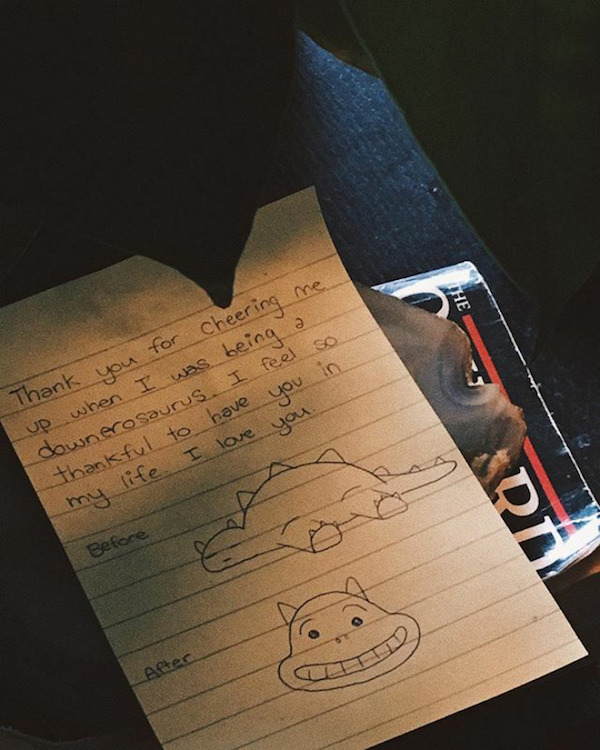 Thank you for cheering me
up when I was being a
downerosaurus. I feel so
thankful to have you in
my life. I love you.
Before
After
THE